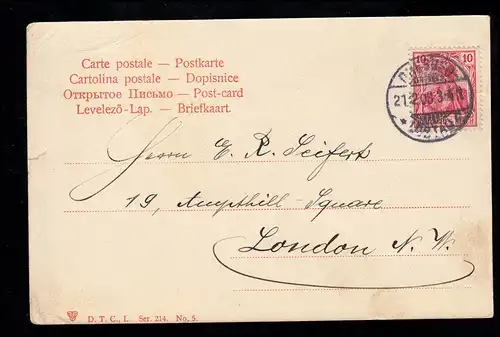 Carte postale — Postkarte
Cartolina postale — Dopisnice
Открытое Письмо — Post-card
Levelező-Lap. — Briefkaart.
10 10
21.12.03.3-4
Herrn E. R. Seifert
19, Ampthill-Square
London N. W.
D. T. C., L. Ser. 214. No. 5.